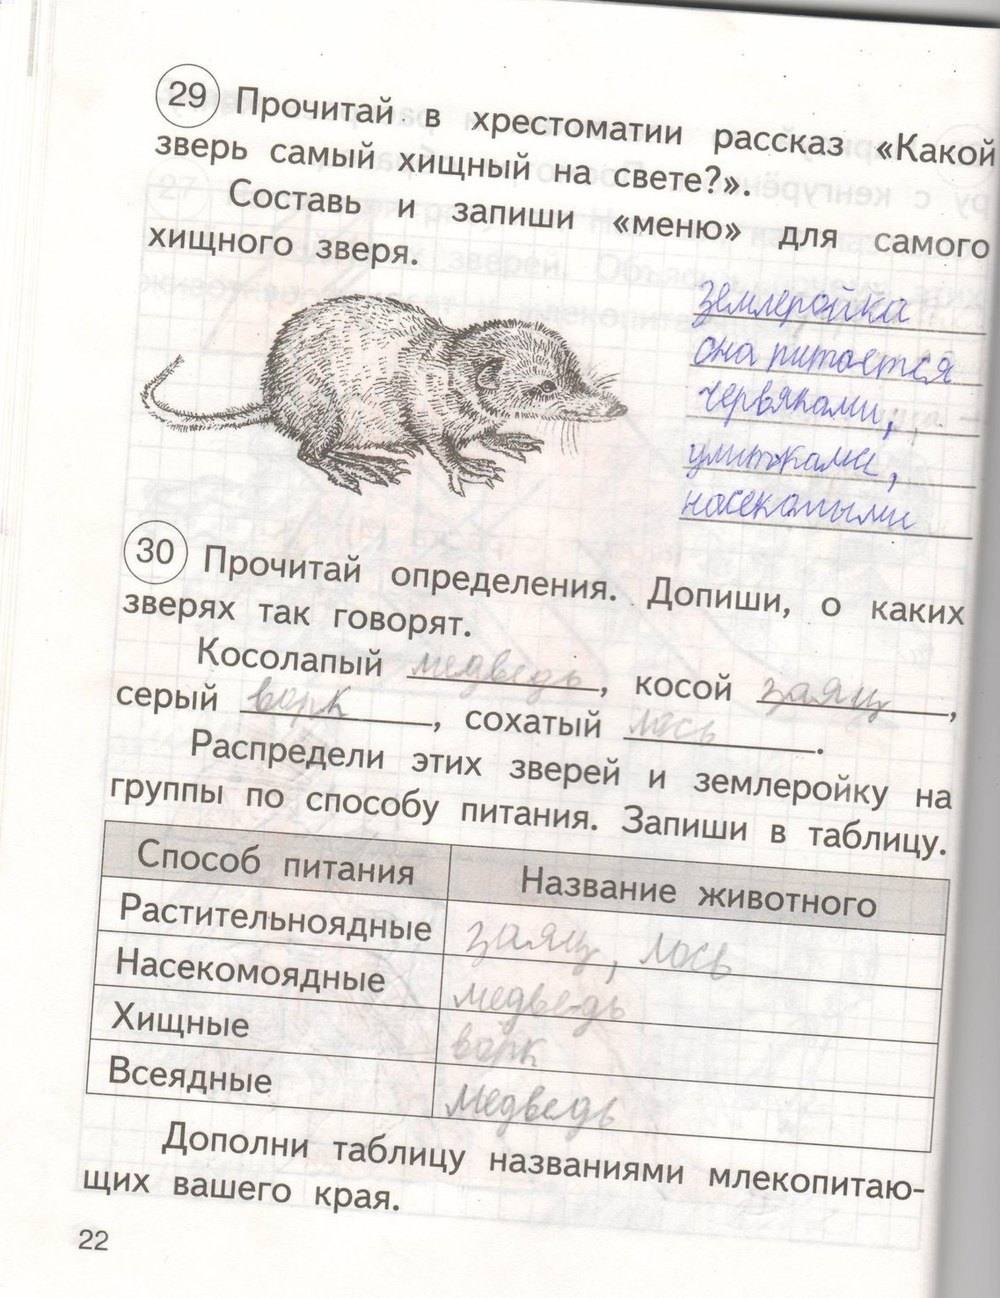 29 Прочитай в хрестоматии рассказ «Какой
зверь самый хищный на свете?».
Составь и запиши «меню» для самого
хищного зверя.
землеройка
она питается
червяками,
улитками,
насекомыми
30 Прочитай определения. Допиши, о каких
зверях так говорят.
Косолапый медведь, косой заяц,
серый ворк, сохатый лось.
Распредели этих зверей и землеройку на
группы по способу питания. Запиши в таблицу.
Способ питания Название животного
Растительноядные заяц, лось
Насекомоядные медведь
Хищные ворк
Всеядные медведь
Дополни таблицу названиями млекопитаю-
щих вашего края.
22